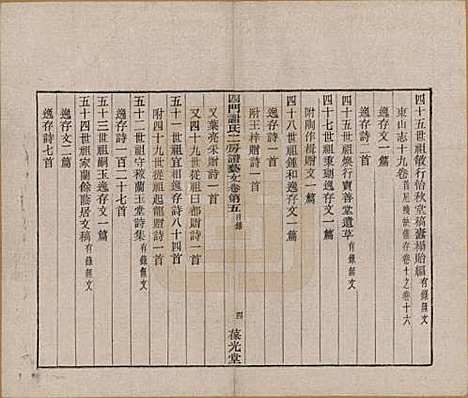 四十五世祖敏行怡秋堂稿蠹楊貽編有錄無文
東山志十九卷首尾殘缺僅存卷十之卷十六
逸存文一篇
逸存詩一首
四十六世祖樂行寶善堂遺草有錄無文
四十七世祖東瑚逸存文一篇
附陶作楫贈文一篇
四十八世祖鍾和逸存文一篇
附王梓贈詩一首
四門謝氏二房譜藝文卷第五目錄
四
葆光堂
又葉亮采贈詩一首
又四十九世從祖曰都贈詩一首
五十一世祖宜相逸存詩八十四首
附四十九世從祖起龍贈詩一首
五十二世祖守稼蘭玉堂詩集有錄無文
逸存詩一百二十七首
五十三世祖嗣玉逸存文一篇
五十四世祖家蘭餘蔭居文稿有錄無文
逸存文一篇
逸存詩七首